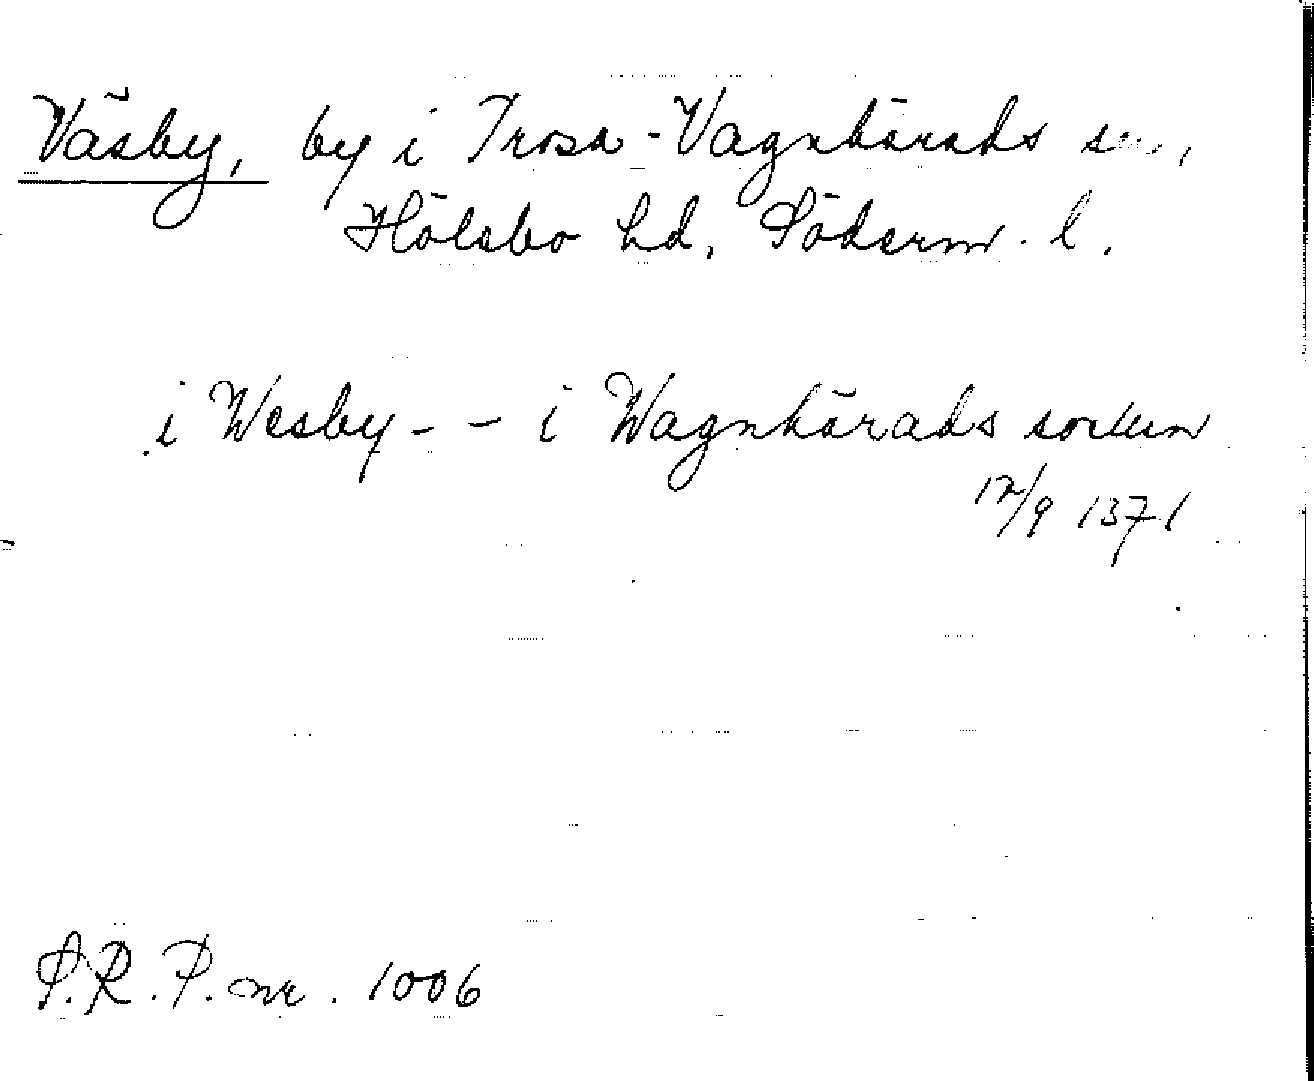 Väsby, by i Trosa-Vagnhärads sn,
Hölebo hd, Söderm. l.
i Wesby - - i Wagnhärads sorken
12/9 1371
S.R.P. nr. 1006